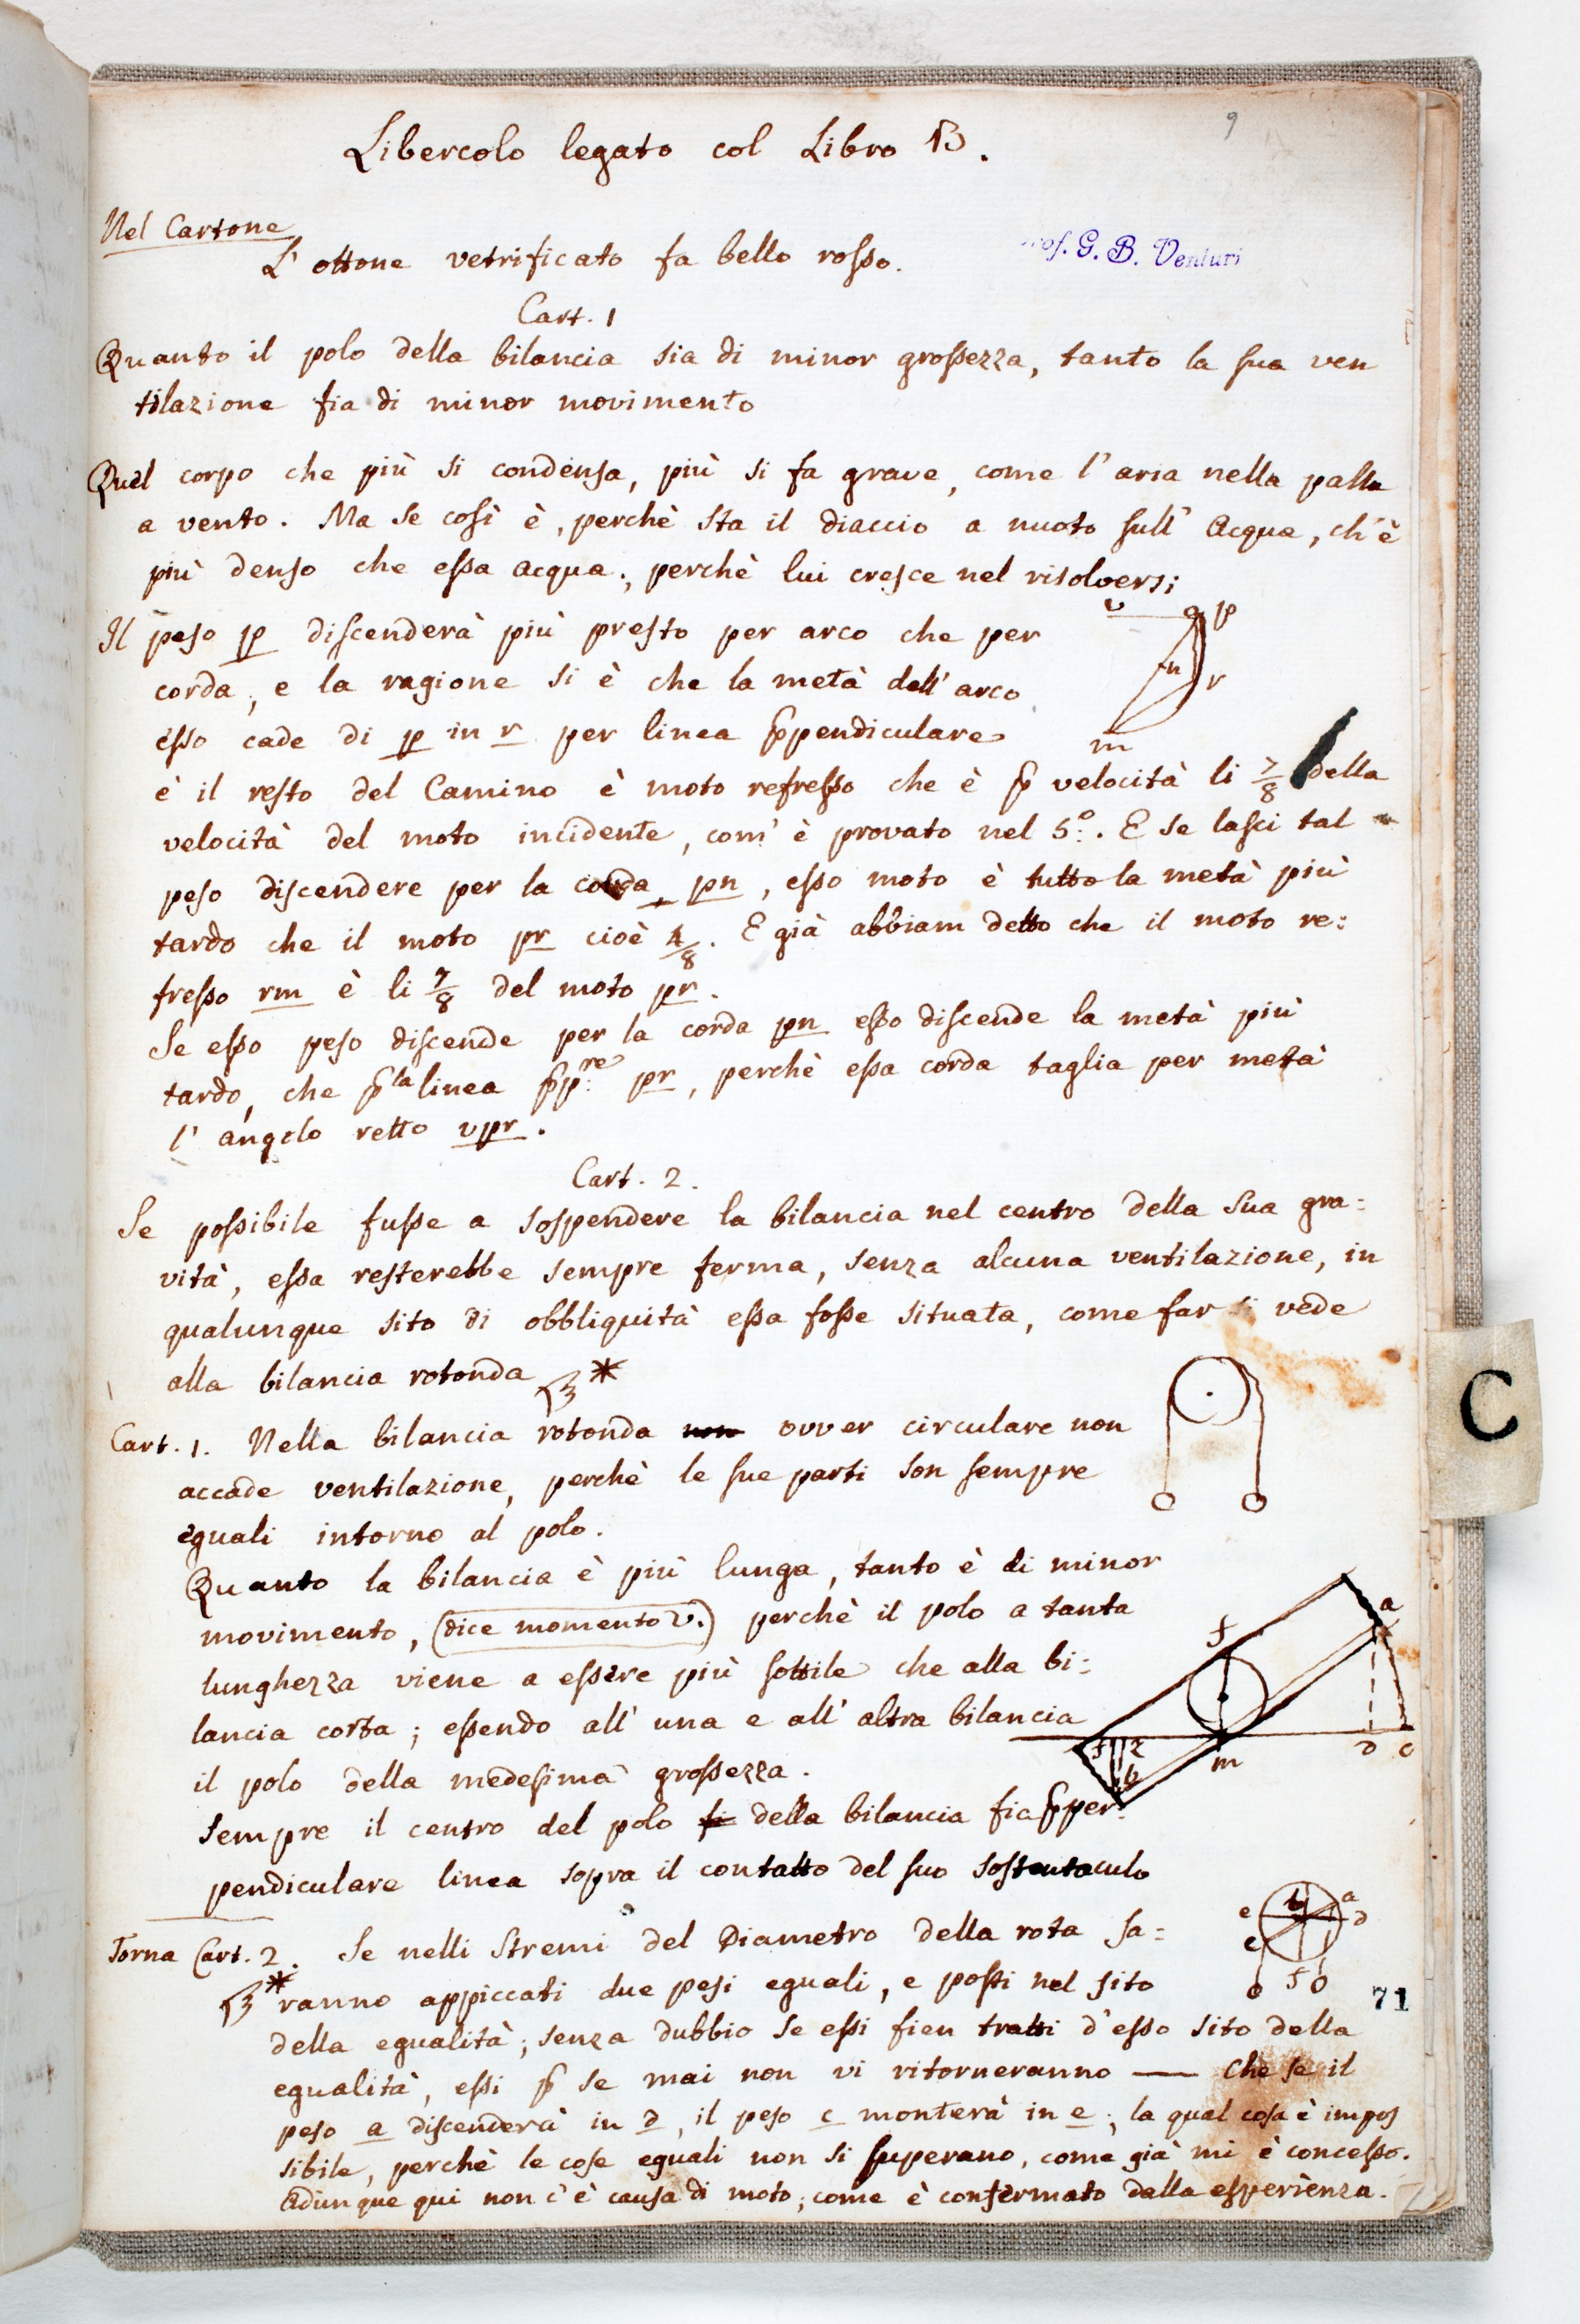 9
Libercolo legato col Libro B.
Nel Cartone
L' ottone vetrificato fa bello rosso.
Prof. G. B. Venturi
Cart. 1
Quanto il polo della bilancia sia di minor grossezza, tanto la sua ven
tilazione fia di minor movimento
Quel corpo che più si condensa, più si fa grave, come l'aria nella palla
a vento. Ma se così è, perchè sta il diaccio a nuoto sull' Acqua, ch'è
più denso che essa acqua; perchè lui cresce nel risolversi
v p
Il peso p discenderà più presto per arco che per
n r
corda, e la ragione si è che la metà dell' arco
esso cade di p in r per linea ppendiculare
m
e il resto del Camino è moto refresso che è p velocità li 7/8 della
velocità del moto incidente, com' è provato nel 5.º. E se lasci tal
peso discendere per la corda pn, esso moto è tutto la metà più
tardo che il moto pr cioè 4/8. E già abbiam detto che il moto re:
fresso rm è li 7/8 del moto pr.
Se esso peso discende per la corda pn esso discende la metà più
tardo, che p la linea pp:re pr, perchè essa corda taglia per metà
l' angolo retto vpr.
Cart. 2.
Se possibile fusse a sospendere la bilancia nel centro della sua gra=
vità, essa resterebbe sempre ferma, senza alcuna ventilazione, in
qualunque sito di obbliquità essa fosse situata, come far si vede
alla bilancia rotonda *
C
Cart. 1. Nella bilancia rotonda non ovver circulare non
accade ventilazione, perchè le sue parti son sempre
eguali intorno al polo.
Quanto la bilancia è più lunga, tanto è di minor
movimento, (dice momento V.) perchè il polo a tanta
f a
lunghezza viene a essere più sottile che alla bi=
lancia corta; essendo all' una e all' altra bilancia
m D c
il polo della medesima grossezza.
b
Sempre il centro del polo fi della bilancia fia p per=
pendiculare linea sopra il contatto del suo sostentaculo
e b a D
Torna Cart. 2. Se nelli stremi del Diametro della rota sa=
c
* ranno appiccati due pesi eguali, e posti nel sito
f
71
della egualità; senza dubbio se essi fien tratti d'esso sito della
egualità, essi p se mai non vi ritorneranno — Che se il
peso a discenderà in D, il peso c monterà in e; la qual cosa è impos
sibile, perchè le cose eguali non si superano, come già mi è concesso.
Adunque qui non c'è causa di moto; come è confermato dalla esperienza.